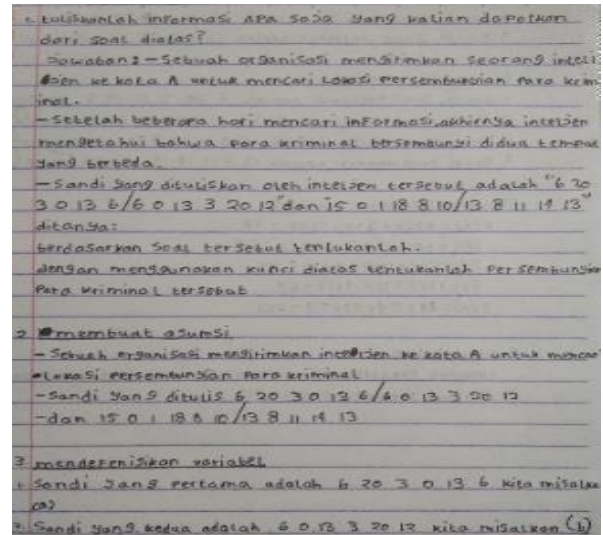 1. tuliskanlah informasi apa saja yang kalian dapatkan
dari soal diatas?
Jawaban: - Sebuah organisasi mengirimkan seorang inteli
jen ke kota A untuk mencari Lokasi Persembunyian Para krim
inal.
- Setelah beberapa hari mencari informasi, akhirnya intelijen
mengetahui bahwa para kriminal bersembunyi didua tempat
yang berbeda.
- Sandi yang dituliskan oleh intelijen tersebut adalah "6 20
3 0 13 6/6 0 13 3 20 12" dan "15 0 1 18 8 10/13 8 11 19 13"
ditanya:
berdasarkan Soal tersebut tentukanlah.
dengan menggunakan kunci diatas tentukanlah Persembunyian
Para kriminal tersebut
2 membuat asumsi
- Sebuah organisasi mengirimkan intelijen ke kota A untuk mencari
Lokasi Persembunyian Para kriminal
- Sandi yang ditulis 6 20 3 0 13 6/6 0 13 3 20 12
- dan 15 0 1 18 8 10/13 8 11 19 13
3 mendefenisikan variabel
1. Sandi yang Pertama adalah 6 20 3 0 13 6 kita misalka
(a)
2. Sandi yang kedua adalah 6 0, 13 3 20 12 kita misalkan (b)